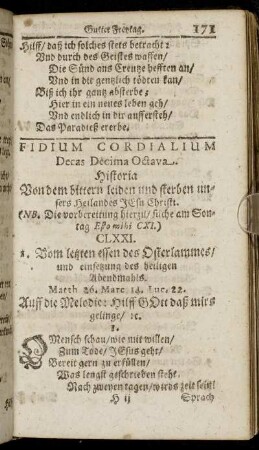 Gutter Freytag. 171
Hilff/ daß ich solches stets betracht:
Vnd durch des Geistes waffen/
Die Sünd ans Creutze hefften an/
Vnd in dir gentzlich tödten kan/
Biß ich ihr gantz absterbe;
Hier in ein neues leben geh/
Vnd endlich in dir aufferfteh/
Das Paradieß ererbe.
FIDIUM CORDIALIUM
Decas Decima Octava.
Historia
Von dem bittern leiden und sterben un-
sers Heilandes JEsu Christi.
(NB. Die vorbereitung hierzu/ suche am Son-
tag Esto mihi CXI.)
CLXXI.
1. Vom letzten essen des Osterlammes/
und einsetzung des heiligen
Abendmahls.
Matth 26. Marc. 14. Luc. 22.
Auff die Melodie: Hilff GOtt daß mirs
gelinge/ ꝛc.
1.
O Mensch schau/ wie mit willen/
Zum Tode/ JEsus geht/
Bereit gern zu erfüllen/
Was lengst geschrieben steht.
Nach zweyen tagen/ wirds zeit seyn!
H ij Sprach